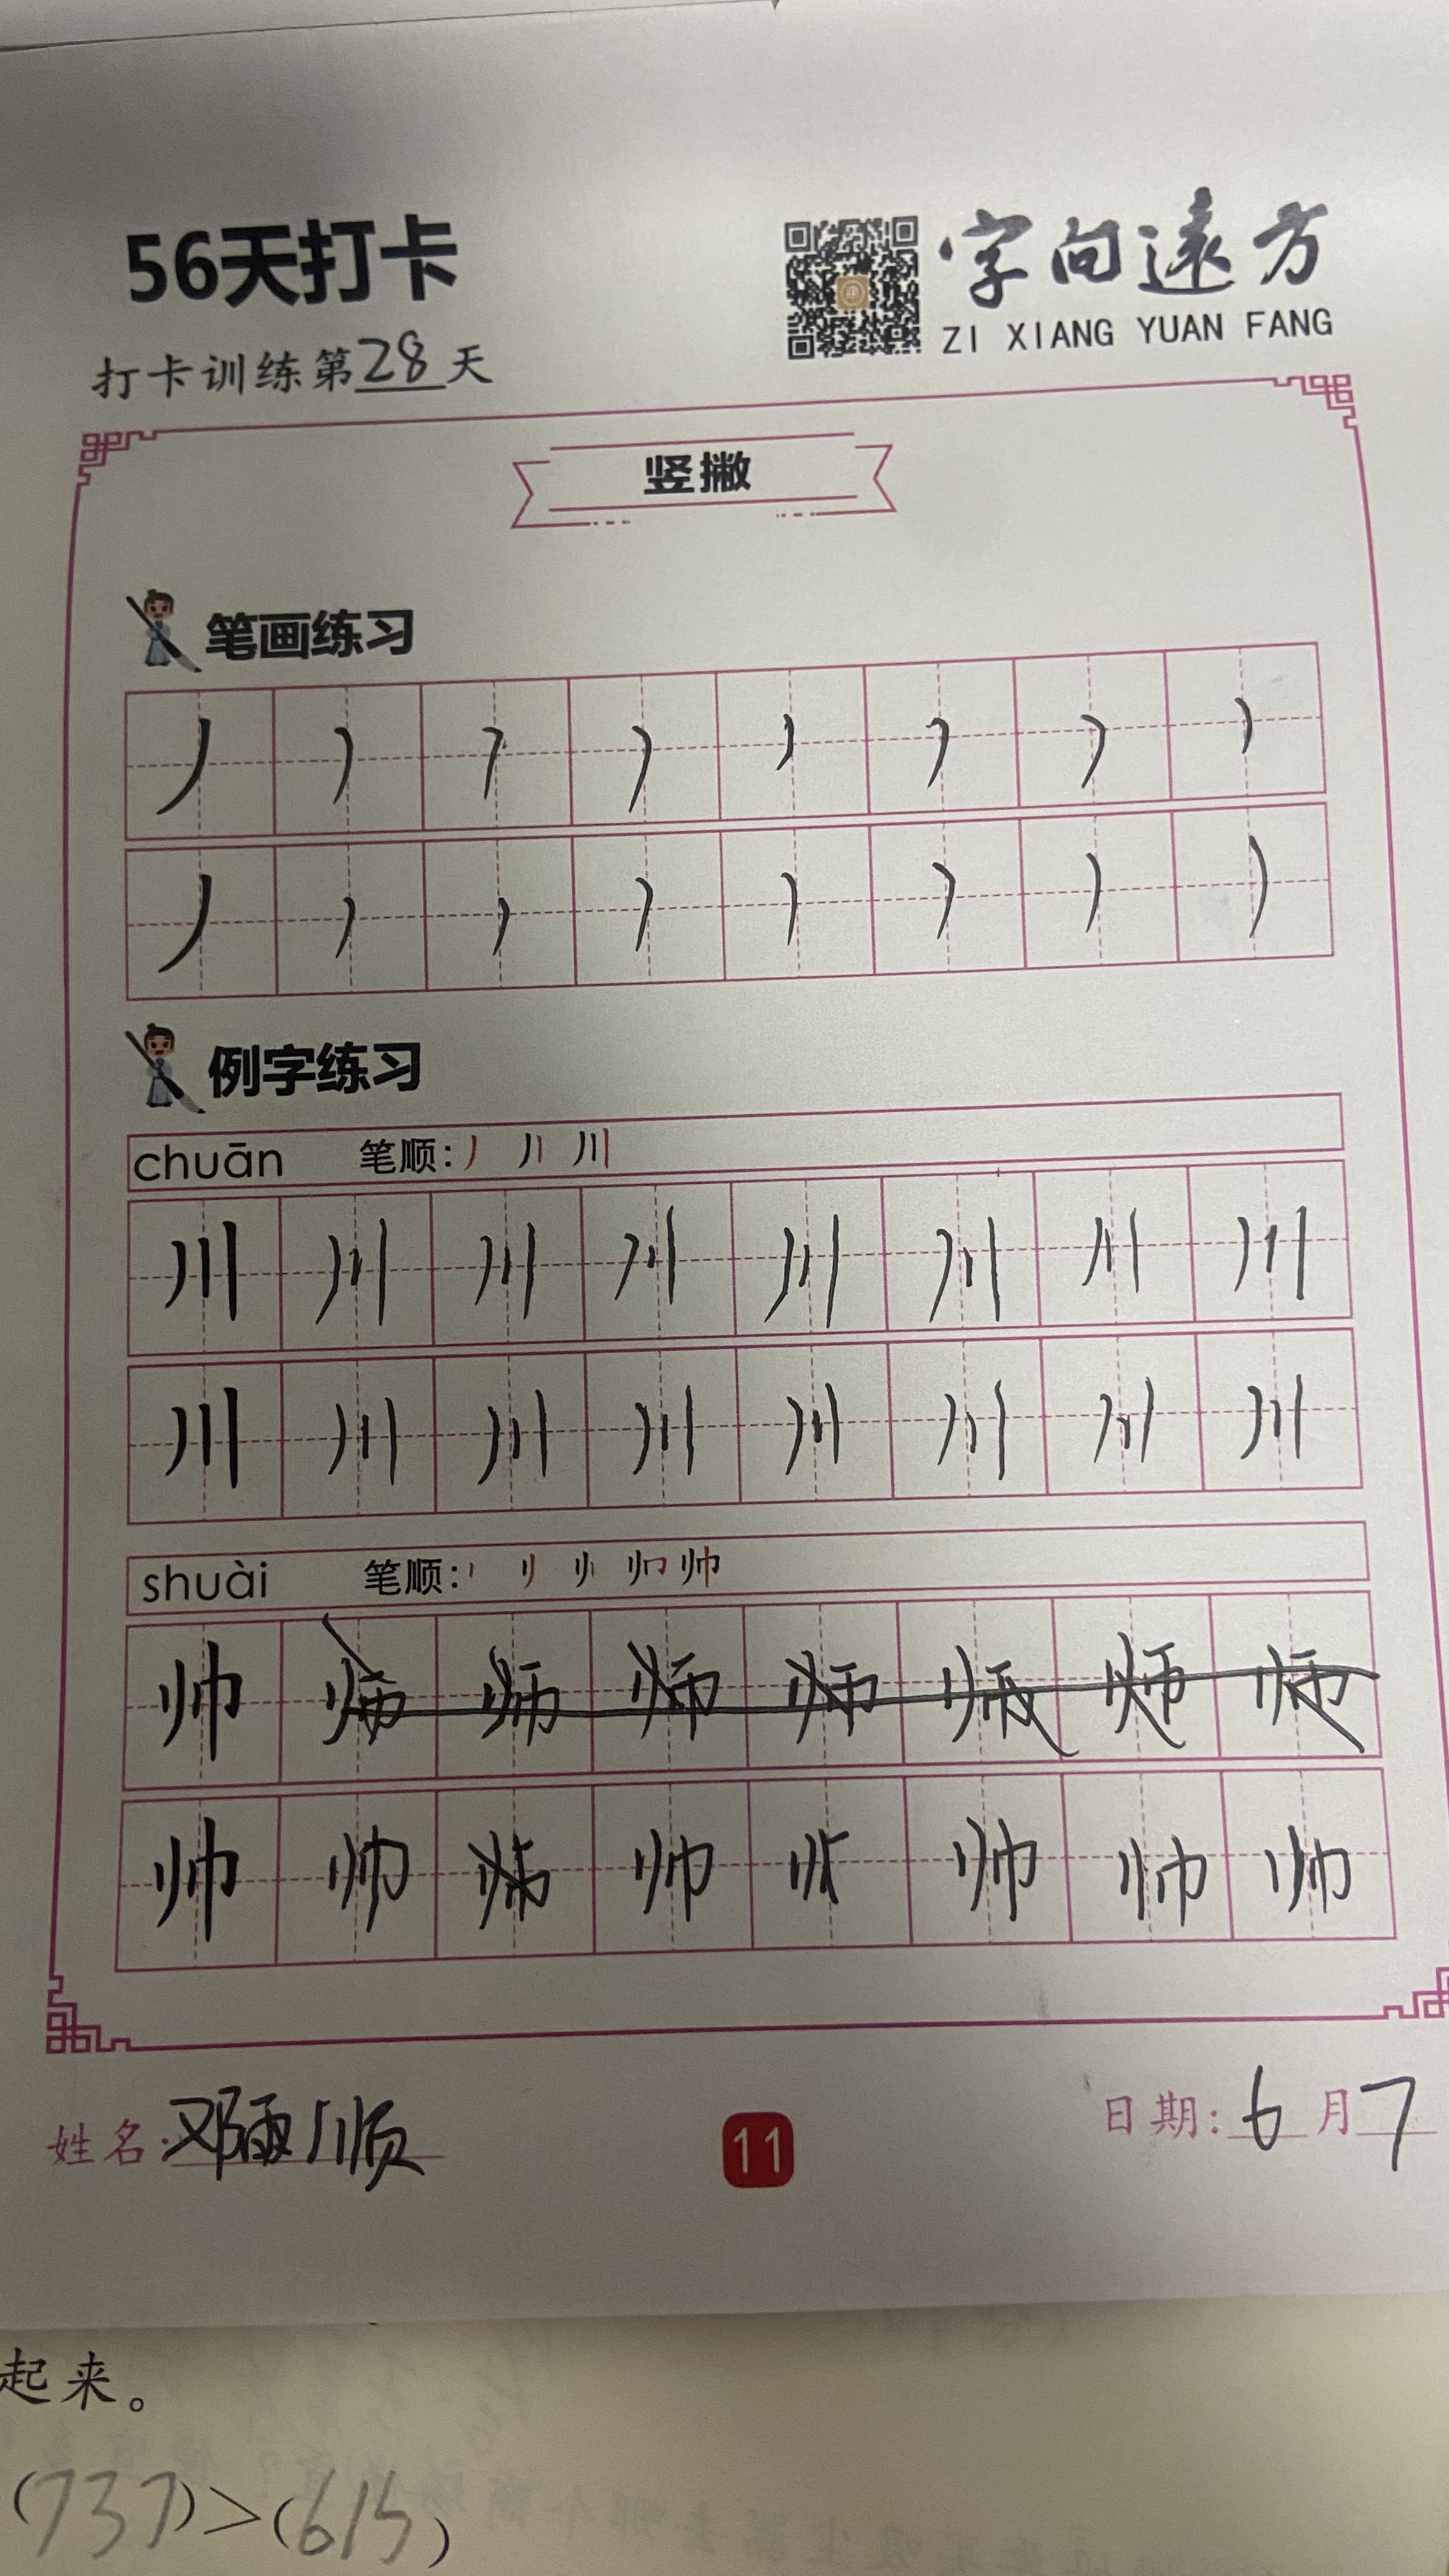 56天打卡
字向遠方
ZI XIANG YUAN FANG
打卡训练第28天
竖撇
笔画练习
丿 丿 丿 丿 丿 丿 丿 丿
丿 丿 丿 丿 丿 丿 丿 丿
例字练习
chuān 笔顺: 丿 丿丨 川
川 川 川 川 川 川 川 川
川 川 川 川 川 川 川 川
shuài 笔顺: 帅
帅 师 师 师 师 师 师 师
帅 帅 帅 帅 帅 帅 帅
姓名: 邓 顺
11
日期: 6月7
起来。
(737)>(615)